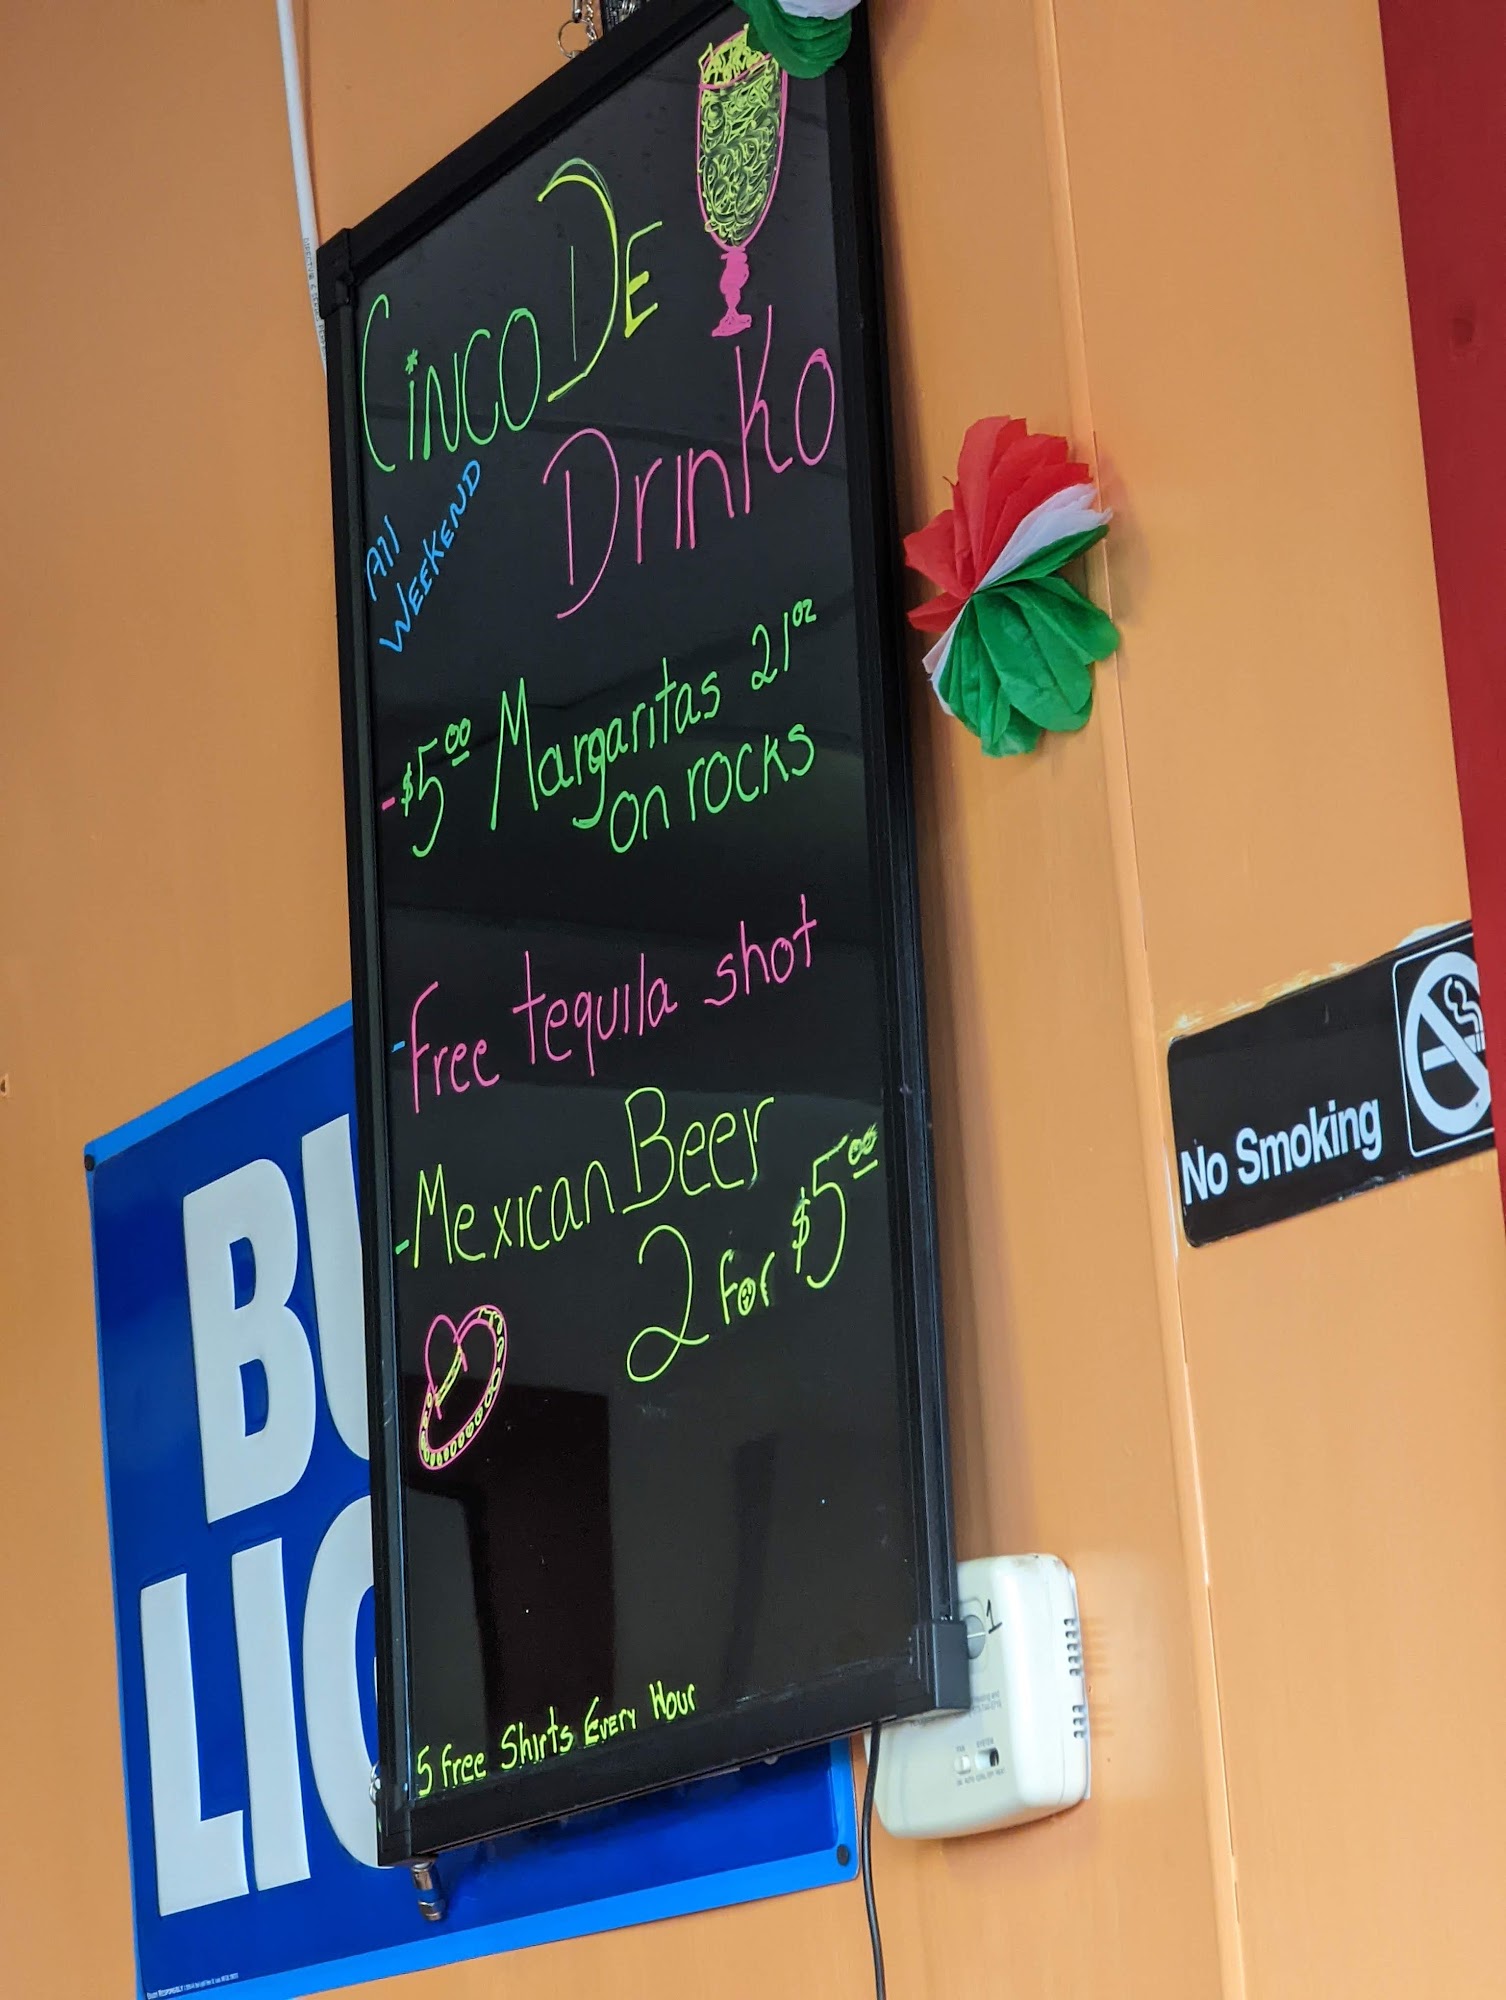 Cinco De
Drinko
All
Weekend
-$5.00 Margaritas 21oz
on rocks
-Free tequila shot
-Mexican Beer
2 for $5.00
5 free Shirts Every Hour
BU
LIG
No Smoking
1